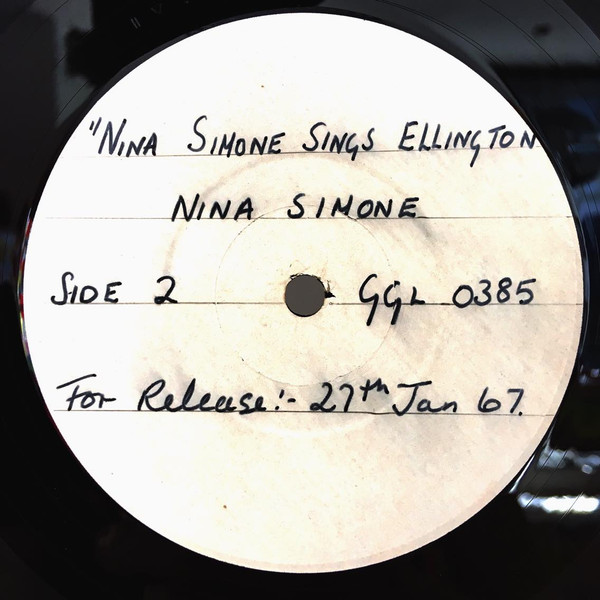 "NINA SIMONE SINGS ELLINGTON
NINA SIMONE
SIDE 2 GGL 0385
For Release:- 27th Jan 67.